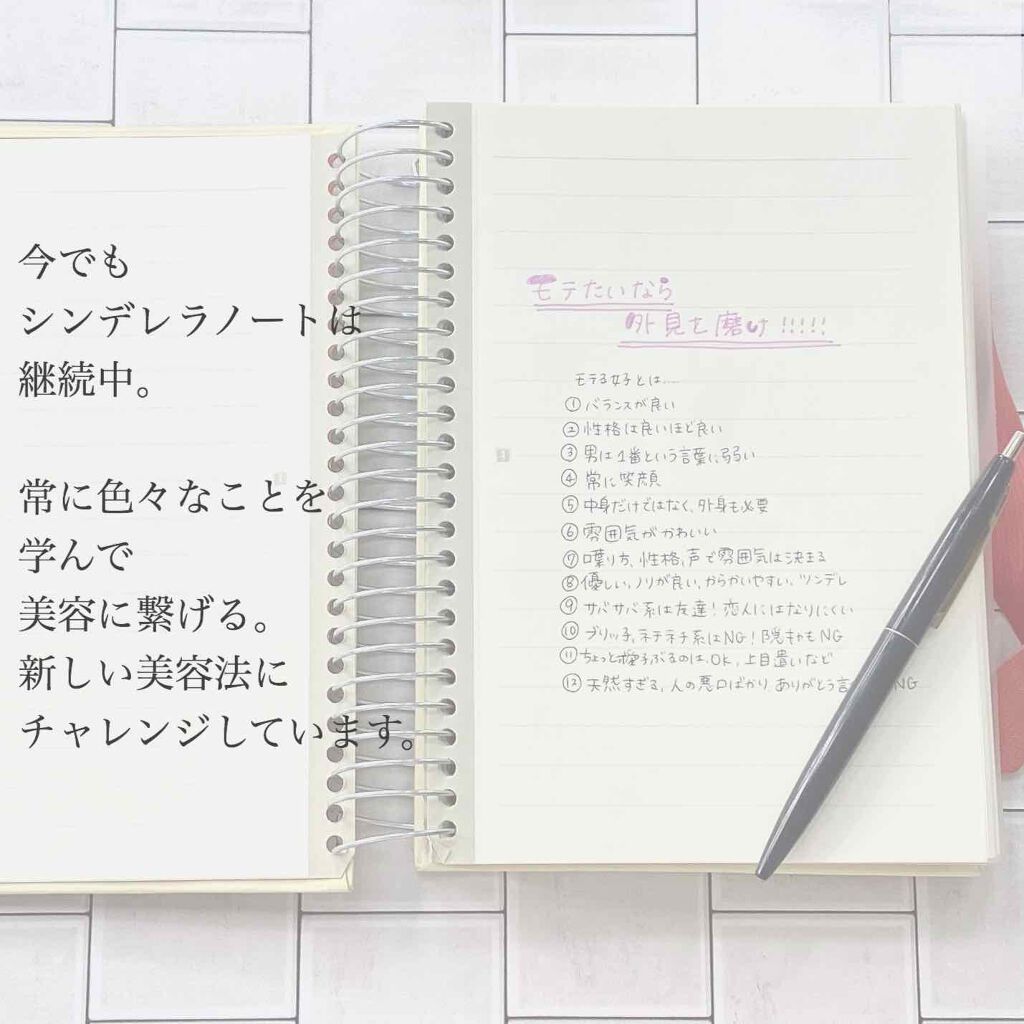 今でも
シンデレラノートは
継続中。
常に色々なことを
学んで
美容に繋げる。
新しい美容法に
チャレンジしています。
モテたいなら
外見を磨け!!!!!
モテる女子とは....
①バランスが良い
②性格は良いほど良い
③男は1番という言葉に弱い
④常に笑顔
⑤中身だけではなく、外身も必要
⑥雰囲気がかわいい
⑦喋り方、性格、声で雰囲気は決まる
⑧優しい、ノリが良い、からかいやすい、ツンデレ
⑨サバサバ系は友達!恋人にはなりにくい
⑩ブリッ子、ネチネチ系はNG!陰キャもNG
⑪ちょっと撫子ぶるのは、OK、上目遣いなど
⑫天然すぎる、人の悪口ばかり、ありがとう言 NG